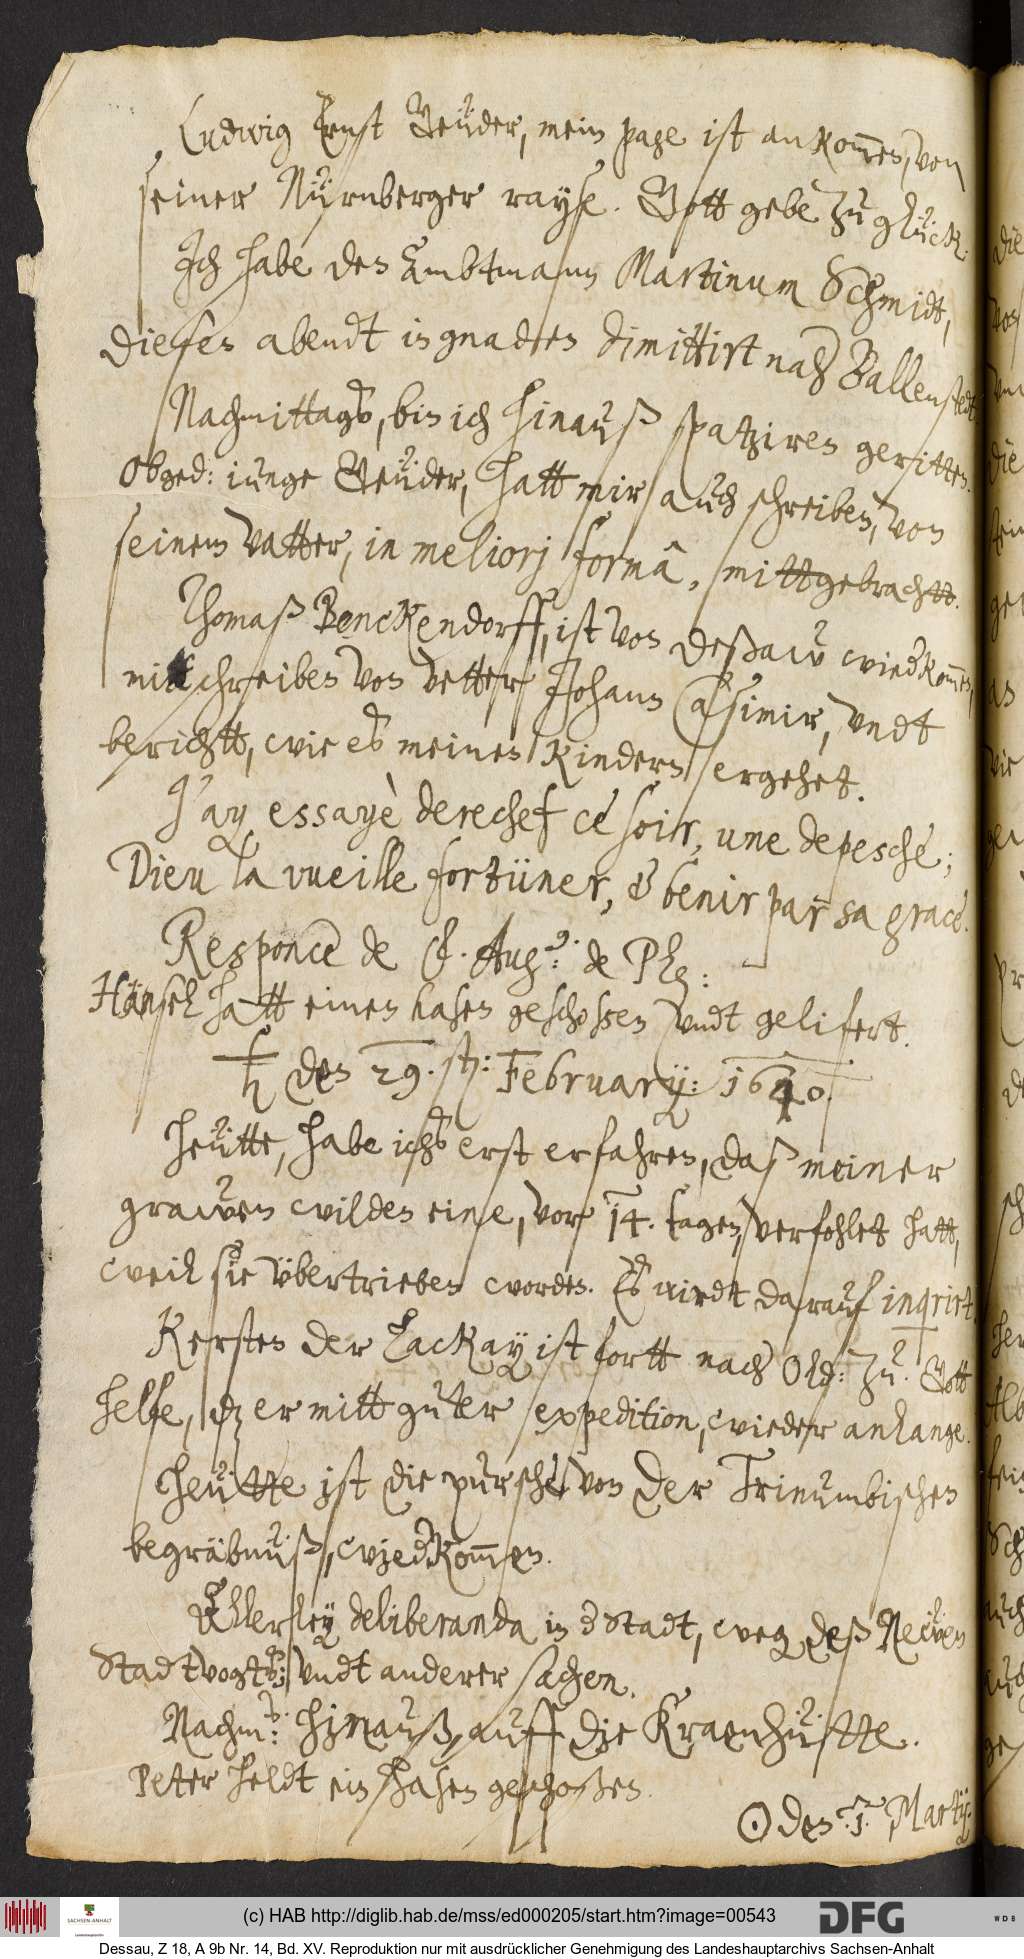 Ludwig Ernst Geüder, mein page ist ankom̅en, von
seiner Nürnberger rayse. Gott gebe zu glück.
Ich habe den Ambtmann Martinum Schmidt,
diesen abendt in gnaden dimittirt nach Ballenstedt
Nachmittags, bin ich hinauß spatziren geritten.
Obged: iunge Geüder, hatt mir auch schreiben, von
seinem Vatter, in meliorj formâ, mittgebrachtt.
Thomaß Benckendorff, ist von Deßaw wiedkom̅en,
mitt schreiben von vetter Johann Casimir, vndt
berichtt, wie es meinen kindern ergehet.
J'ay essayè derechef ce soir, une depesche;
Dieu la vueille fortüner, & benir par sa grace.
Responce de Augg: de Plg:
Hänsel hatt einen hasen geschossen vndt gelifert.
♄ den 29. sten: February: 1640.
Heütte, habe ichs erst erfahren, daß meiner
grawen wilden eine, vor 14. tagen, verfohlet hatt,
weil sie übertrieben worden. Es wirdt darauf inqrirt.
Kersten der Lackay ist fortt nach Old: zu. Gott
helfe, dz er mitt guter expedition, wieder anlange.
Heütte ist die pursche von der Trinumbischen
begräbnüß, wiedkom̅en.
Allerley deliberanda in d Stadt, weg deß Newen
Stadtvogts; vndt anderer sachen.
Nachm: hinauß, auff die Kraenhütte.
Peter Heldt ein hasen geschoßen.
☉ den 1. Martij:
(c) HAB http://diglib.hab.de/mss/ed000205/start.htm?image=00543
SACHSEN-ANHALT
DFG
WDB
Dessau, Z 18, A 9b Nr. 14, Bd. XV. Reproduktion nur mit ausdrücklicher Genehmigung des Landeshauptarchivs Sachsen-Anhalt